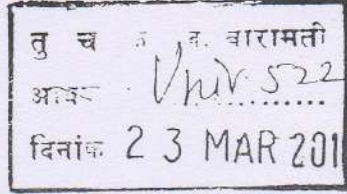 तु च क द. बारामती
आवक Univ. 522
दिनांक 2 3 MAR 201